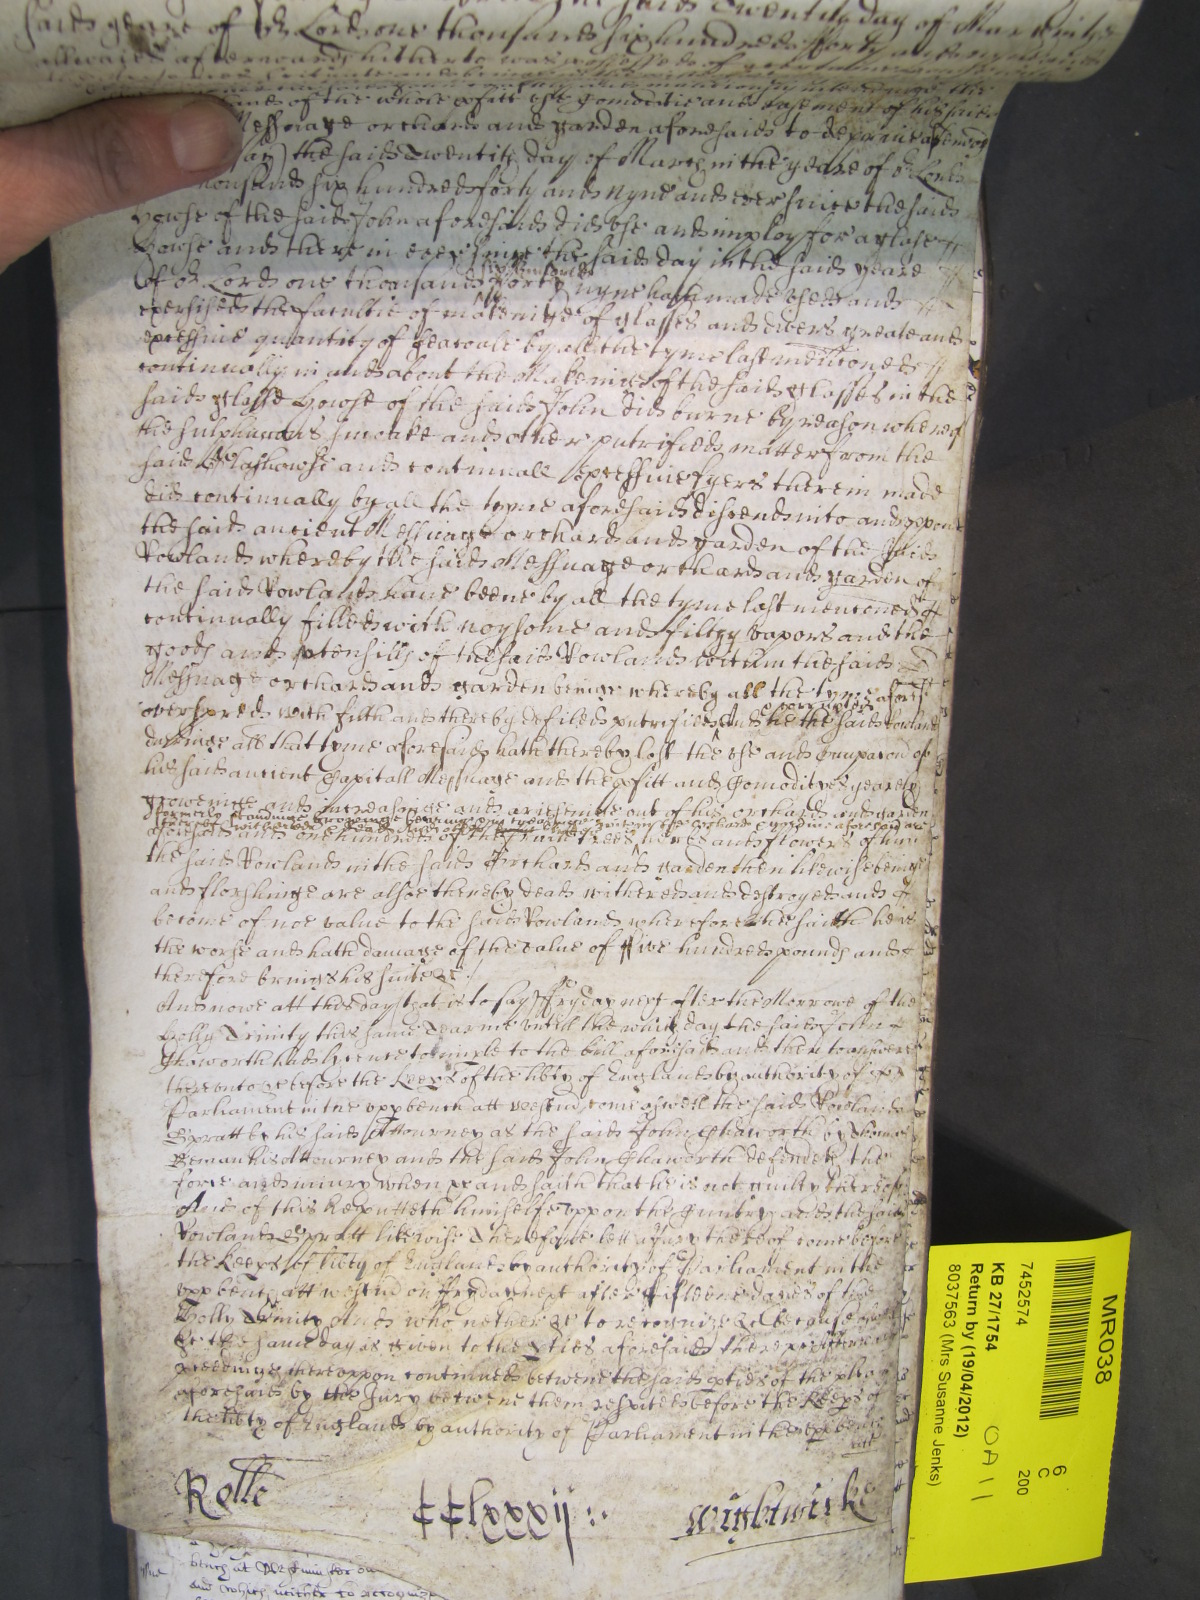 said yeare of or Lord one thousand six hundred forty and nyne
allwaies afterwards hitherto was possessed of
of the whole pfitt use comoditie and easement of his said
Messuage orchard and garden aforesaid to deprive
the said Twentith day of March in the yeare of or Lord
thousand six hundred forty and nyne and ever since the said
howse of the said John aforesaid did use and imploy for a glasse
howse and therein ever since the said day in the said yeare
of or Lord one thousand six hundred forty nyne hath made used and
exersised the facultie of makeinge of glasses and divers greate and
excessive quantity of seacoale by all the tyme last mentioned
continually in and about the makeinge of the said glasses in the
said glasse howse of the said John did burne by reason whereof
the sulphurous smoake and other putrified matter from the
said Glashowse and continuall excessive fyers therein made
did continually by all the tyme aforesaid discend into and uppon
the said ancient Messuage orchard and garden of the said
Rowland whereby the said Messuage orchard and garden of
the said Rowland have beene by all the tyme last mentioned
continually filled with noysome and filthy vapors and the
goods and utensills of the said Rowland within the said
Messuage orchard and garden beinge whereby all the tyme afores
overspred with filth and thereby defiled putrified and he the said Rowland
duringe all that tyme aforesaid hath thereby lost the use and ocupacon of
his said ancient Capitall Messuage and the pfitt and Comodityes yearely
groweinge and increasinge and ariseinge out of his orchard and garden
formerly standinge groweinge
aforesaid one hundred of the fruite trees and flowers of him
the said Rowland in the said Orchard and garden then likewise beinge
and florishinge are alsoe thereby dead withered and destroyed and
become of noe value to the said Rowland wherefore he saith he is
the worse and hath damage of the value of five hundred pounds and
therefore brings his suite &c
And nowe att this day that is to say fryday next after the Morrowe of the
holly Trinity this same Tearme untill which day the said John
Chaworth had licence to imparle to the bill aforesaid and then to answere
thereunto &c before the Keeps of the libty of England by authority of
Parliament in the uppbench att Westm come aswell the said Rowland
Spratt by his said Attourney as the said John Chaworth by Thomas
his Attourney and the said John Chaworth defendeth the
force and iniury when &c and saith that he is not guilty thereof
And of this he putteth himselfe uppon the Cuntry and the said
Rowland Spratt likewise Therefore lett a Jury thereof come before
the Keeps of libty of England by authority of Parliament in the
uppbench att westm on fryday next after fifteene dayes of the
holly Trinity And who nether &c to recognize &c because
&c the same day is given to the pties aforesaid there
pceedings thereuppon continued betwene the said pties of the plea
aforesaid by the Jury betwene them respited before the Keeps of
the libty of England by authority of Parliament in the uppbench
att
Rolle
CClxxxij
Wightwicke
bench at Westminster
and which neither to recognize
MR038
7452574
6
C
200
KB 27/1754
Return by (19/04/2012)
8037563 (Mrs Susanne Jenks)
OA 11